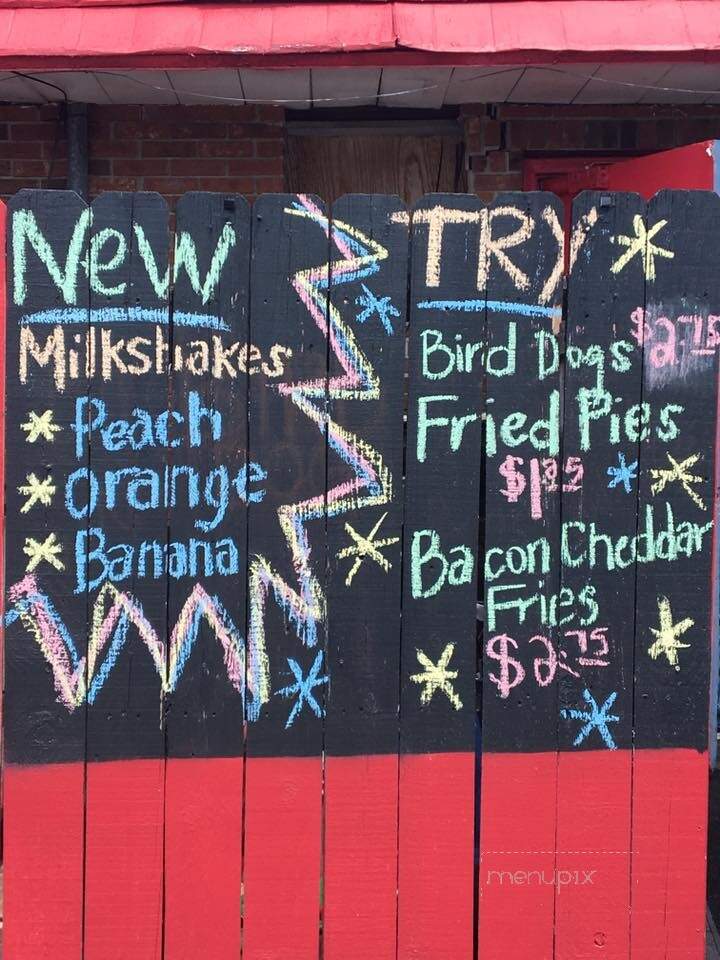 New
Milkshakes
* Peach
* orange
* Banana
TRY
Bird Dogs $2.75
Fried Pies
Bacon Cheddar
Fries
$2.75
menupix